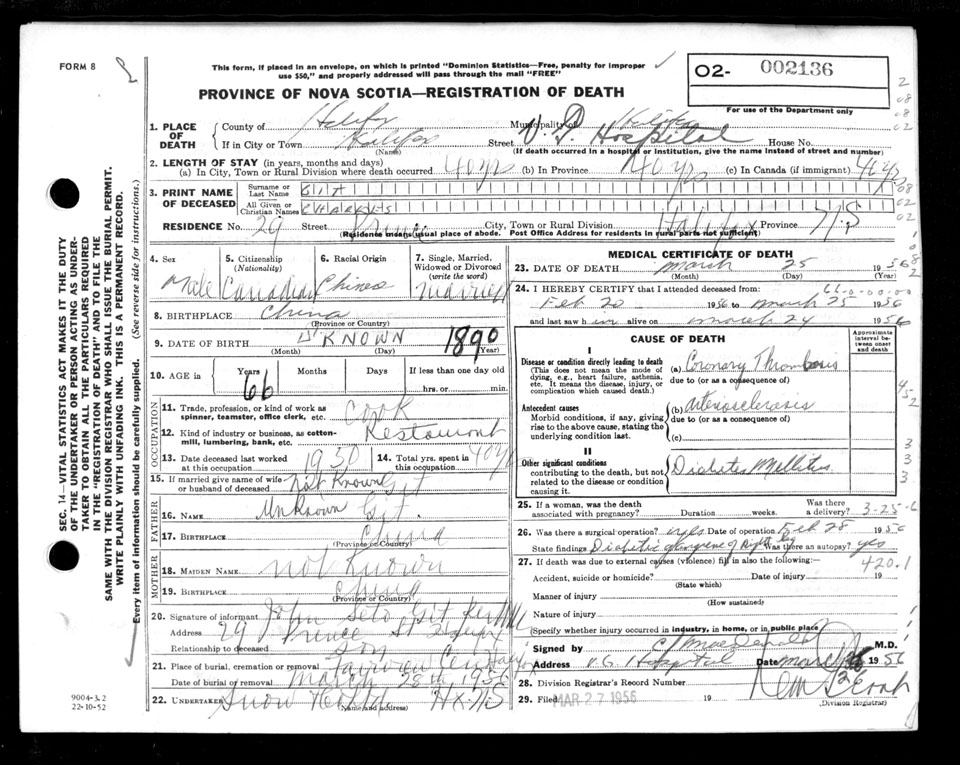 FORM 8
This form, if placed in an envelope, on which is printed "Dominion Statistics—Free, penalty for improper
use $50," and properly addressed will pass through the mail "FREE"
O2- 002136
PROVINCE OF NOVA SCOTIA—REGISTRATION OF DEATH
For use of the Department only
1. PLACE OF DEATH
County of Halifax Municipality of Halifax
If in City or Town Halifax Street V. G. Hospital House No.
(Name) (If death occurred in a hospital or institution, give the name instead of street and number)
2. LENGTH OF STAY (in years, months and days)
(a) In City, Town or Rural Division where death occurred 40 yrs (b) In Province 40 yrs (c) In Canada (if immigrant) 46 yrs
3. PRINT NAME OF DECEASED
Surname or Last Name GIT
All Given or Christian Names CHARLES
RESIDENCE No. 29 Street Prince City, Town or Rural Division Halifax Province N.S
(Residence means usual place of abode. Post Office Address for residents in rural parts not sufficient)
4. Sex Male
5. Citizenship (Nationality) Canadian
6. Racial Origin Chinese
7. Single, Married, Widowed or Divorced (write the word) Married
8. BIRTHPLACE China
(Province or Country)
9. DATE OF BIRTH UNKNOWN 1890
(Month) (Day) (Year)
10. AGE in Years 66 Months Days If less than one day old
hrs. or min.
OCCUPATION
11. Trade, profession, or kind of work as spinner, teamster, office clerk, etc. Cook
12. Kind of industry or business, as cotton-mill, lumbering, bank, etc. Restaurant
13. Date deceased last worked at this occupation 1930
14. Total yrs. spent in this occupation 40 yrs
15. If married give name of wife or husband of deceased Not Known Git
FATHER
16. NAME Unknown Git
17. BIRTHPLACE China
(Province or Country)
MOTHER
18. MAIDEN NAME not Known
19. BIRTHPLACE China
(Province or Country)
20. Signature of informant John Seto Git
Address 29 Prince St Halifax
Relationship to deceased Son
21. Place of burial, cremation or removal Fairview Cem
Date of burial or removal March 28th 1956
22. UNDERTAKER Snow Hx. N.S
(Name and address)
MEDICAL CERTIFICATE OF DEATH
23. DATE OF DEATH March 25 1956
(Month) (Day)
24. I HEREBY CERTIFY that I attended deceased from:
Feb 20 1956 to March 25 1956
and last saw him alive on March 24 1956
CAUSE OF DEATH
Approximate interval between onset and death
I
Disease or condition directly leading to death
(This does not mean the mode of dying, e.g., heart failure, asthenia, etc. It means the disease, injury, or complication which caused death.)
(a) Coronary Thrombosis
due to (or as a consequence of)
Antecedent causes
Morbid conditions, if any, giving rise to the above cause, stating the underlying condition last.
(b) Arteriosclerosis
due to (or as a consequence of)
(c)
II
Other significant conditions
contributing to the death, but not related to the disease or condition causing it.
Diabetes Mellitus
25. If a woman, was the death associated with pregnancy? Duration weeks. Was there a delivery? 3-25-6
26. Was there a surgical operation? yes Date of operation Feb 28 1956
State findings Diabetic gangrene of right leg Was there an autopsy? yes
27. If death was due to external causes (violence) fill in also the following:— 420.1
Accident, suicide or homicide? Date of injury 19
(State which)
Manner of injury
(How sustained)
Nature of injury
(Specify whether injury occurred in industry, in home, or in public place)
Signed by MacDonald M.D.
Address V.G. Hospital Date March 1956
28. Division Registrar's Record Number
29. Filed MAR 27 1956 19
(Division Registrar)
SEC. 14—VITAL STATISTICS ACT MAKES IT THE DUTY
OF THE UNDERTAKER OR PERSON ACTING AS UNDER-
TAKER TO OBTAIN ALL THE PARTICULARS REQUIRED
IN THE "REGISTRATION OF DEATH" AND TO FILE THE
SAME WITH THE DIVISION REGISTRAR WHO SHALL ISSUE THE BURIAL PERMIT.
WRITE PLAINLY WITH UNFADING INK. THIS IS A PERMANENT RECORD.
Every item of information should be carefully supplied. (See reverse side for instructions.)
9004-3.2
22-10-52